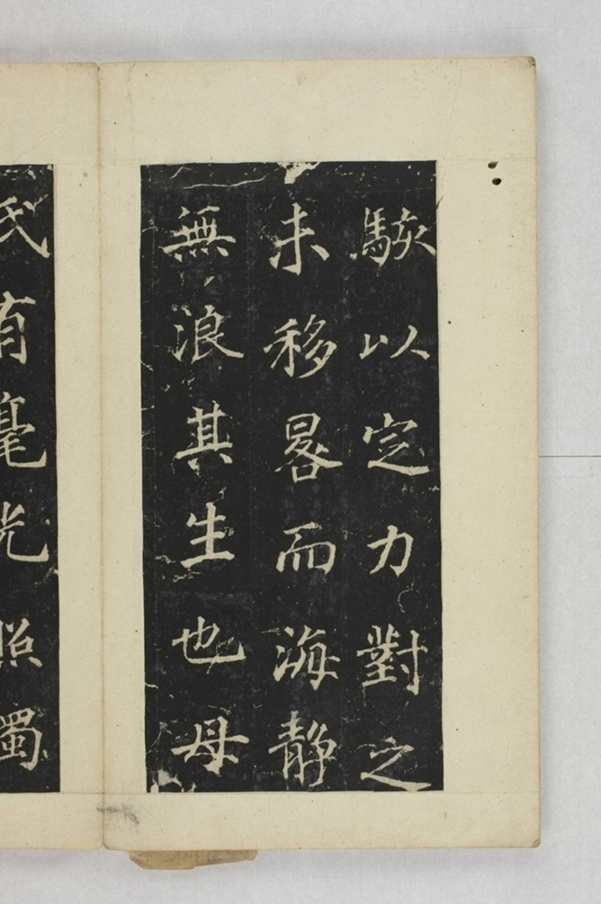 駭以定力對之
未移晷而海静
無浪其生也母
氏有毫光照獨